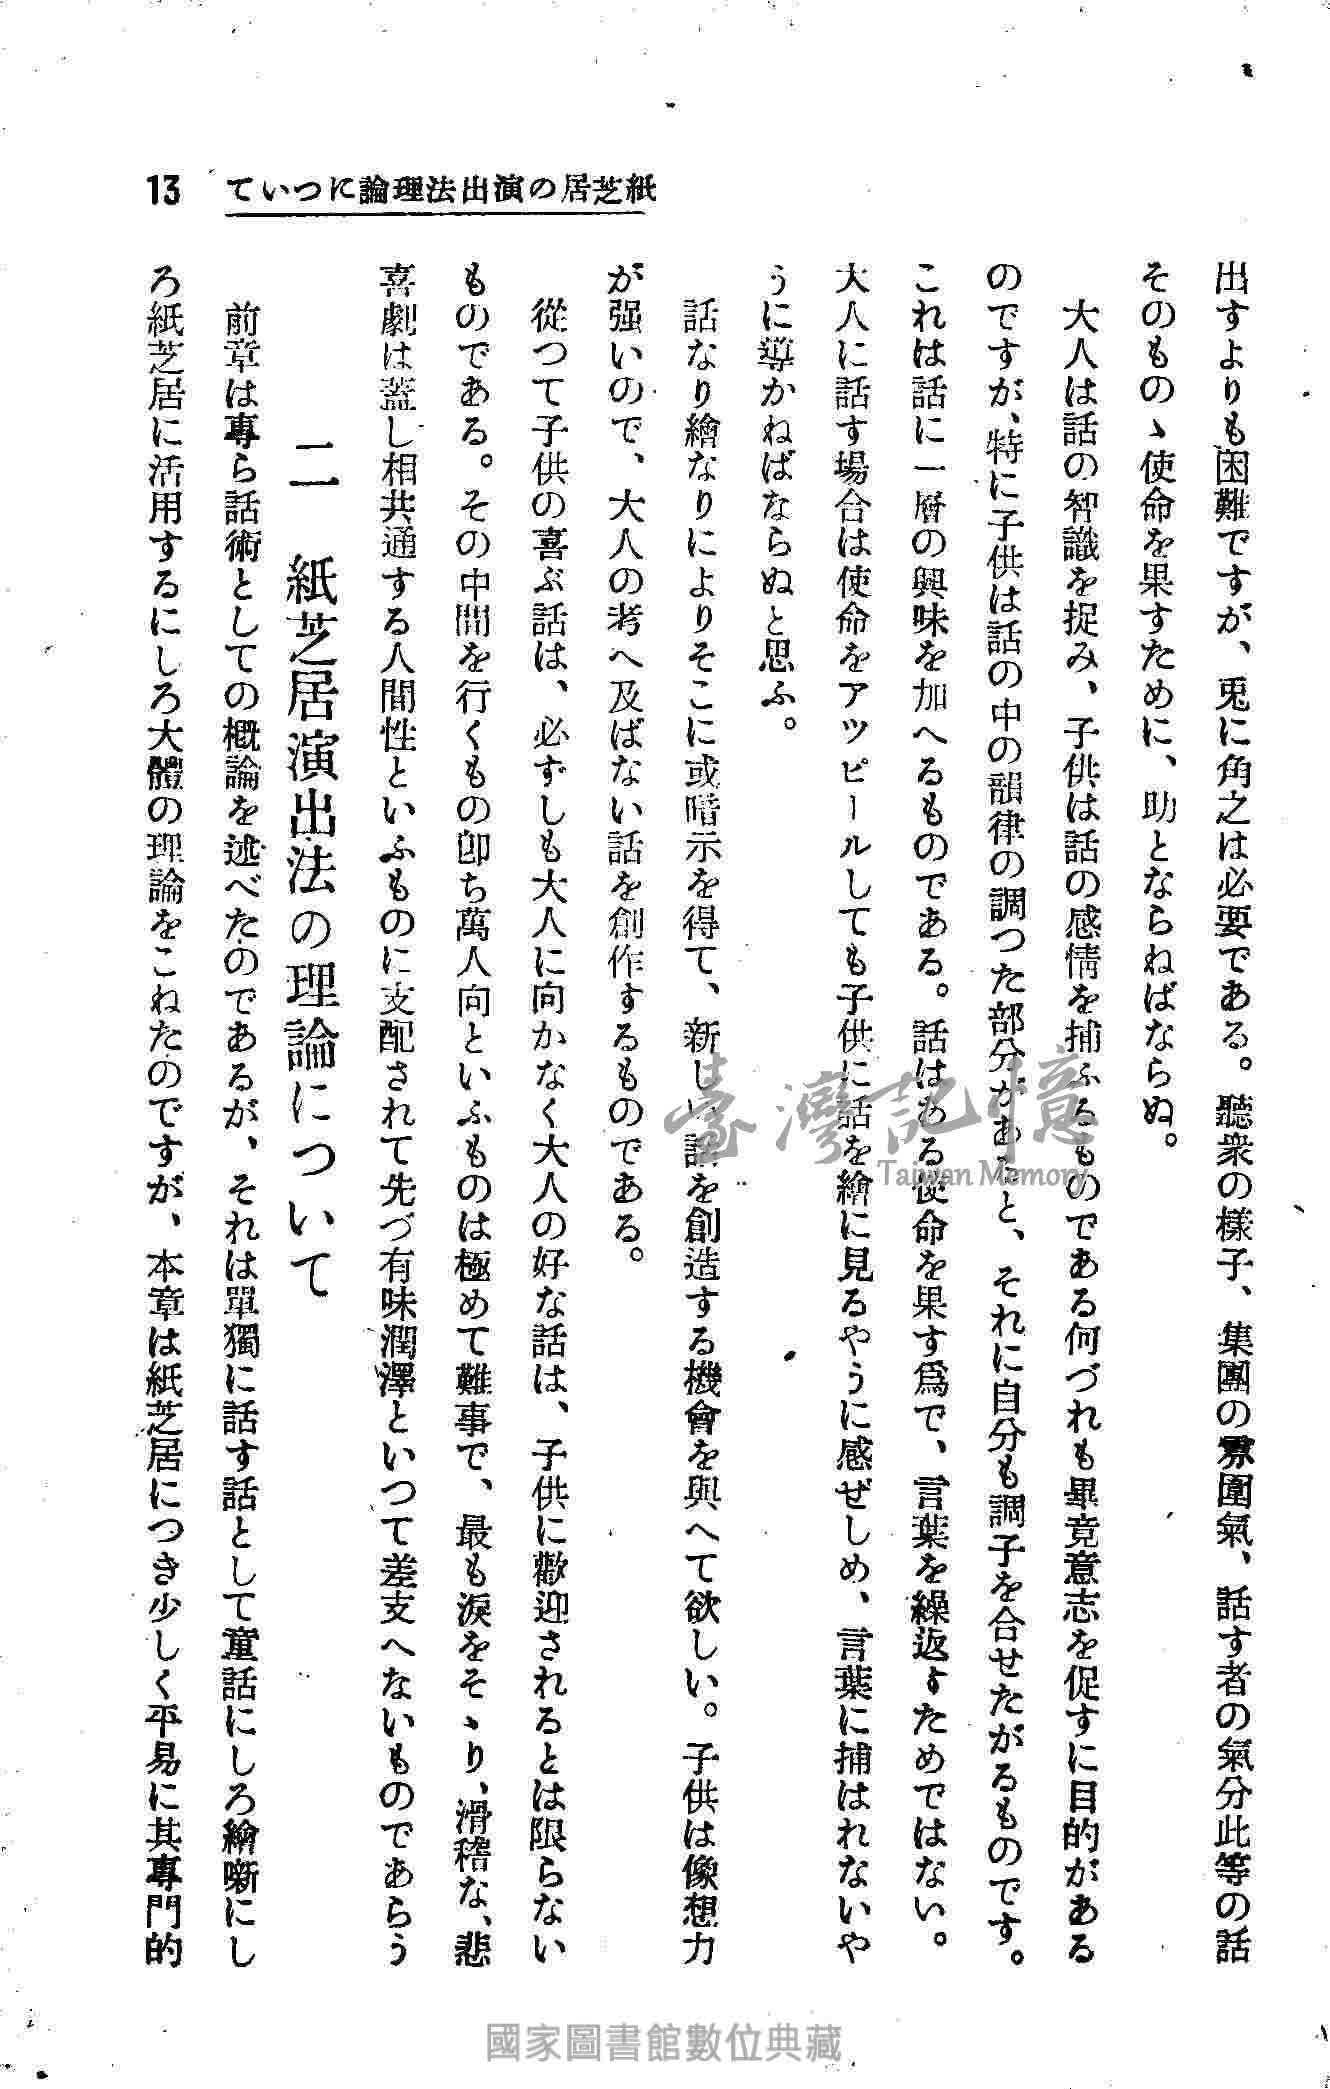 13
ていつに論理法出演の居芝紙
出すよりも困難ですが、兎に角之は必要である。聽衆の樣子、集團の雰圍氣、話す者の氣分此等の話
そのものゝ使命を果すために、助とならねばならぬ。
大人は話の智識を捉み、子供は話の感情を捕ふるものである何づれも畢竟意志を促すに目的がある
のですが、特に子供は話の中の韻律の調つた部分があると、それに自分も調子を合せたがるものです。
これは話に一層の興味を加へるものである。話はある使命を果す爲で、言葉を繰返すためではない。
大人に話す場合は使命をアツピールしても子供に話を繪に見るやうに感ぜしめ、言葉に捕はれないや
うに導かねばならぬと思ふ。
話なり繪なりによりそこに或暗示を得て、新しい話を創造する機會を與へて欲しい。子供は像想力
が强いので、大人の考へ及ばない話を創作するものである。
從つて子供の喜ぶ話は、必ずしも大人に向かなく大人の好な話は、子供に歡迎されるとは限らない
ものである。その中間を行くもの卽ち萬人向といふものは極めて難事で、最も淚をそゝり、滑稽な、悲
喜劇は蓋し相共通する人間性といふものに支配されて先づ有味潤澤といつて差支へないものであらう
二 紙芝居演出法の理論について
前章は專ら話術としての槪論を述べたのであるが、それは單獨に話す話として童話にしろ繪噺にし
ろ紙芝居に活用するにしろ大體の理論をこねたのですが、本章は紙芝居につき少しく平易に其專門的
臺灣記憶
Taiwan Memory
國家圖書館數位典藏